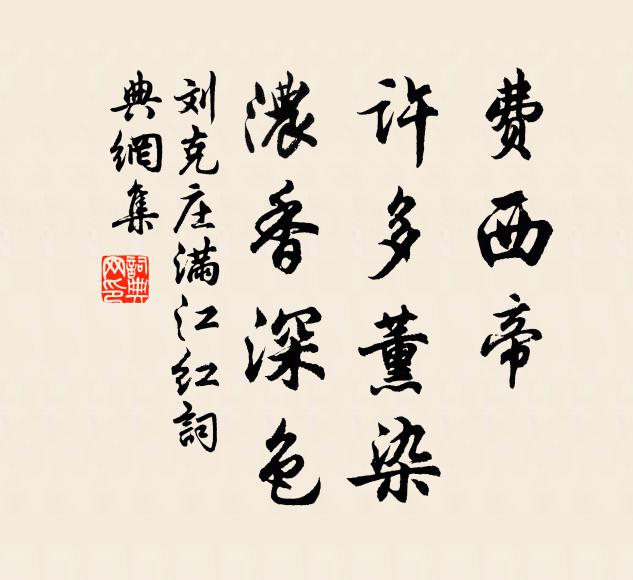 费西帝
许多薰染
濃香深色
刘克庄满江红词
典網集
詞典網印